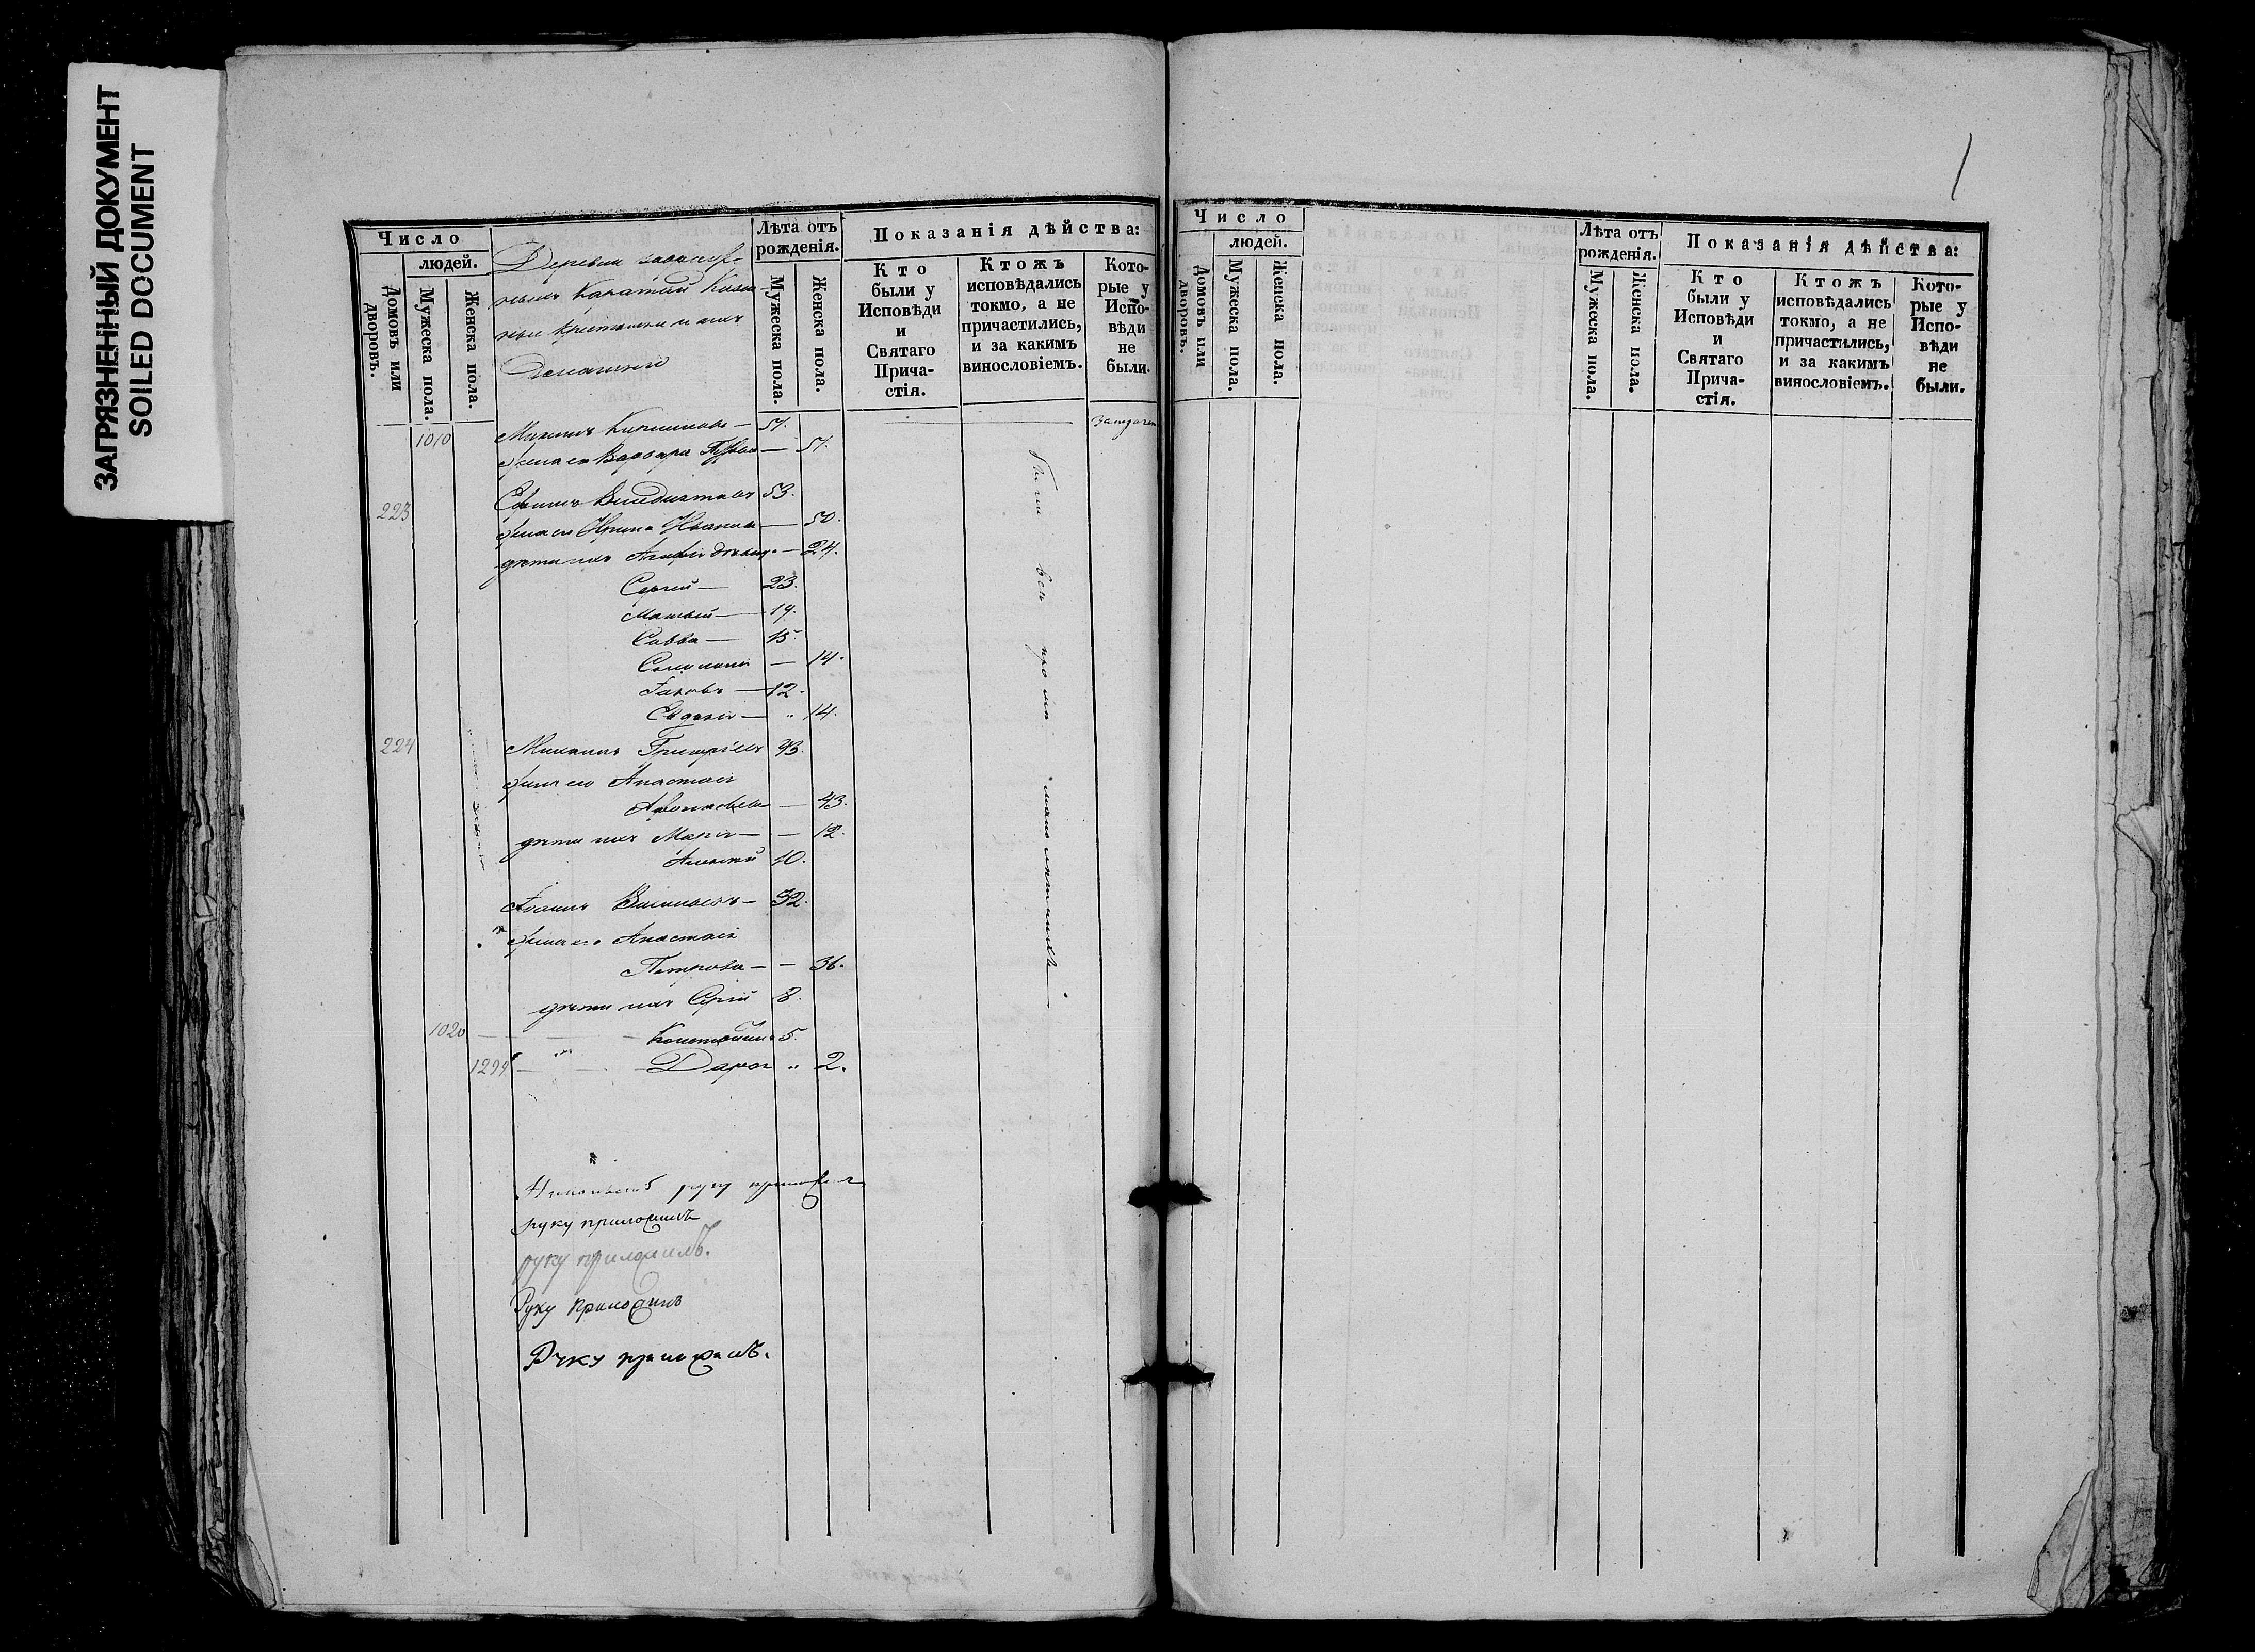 ЗАГРЯЗНЕННЫЙ ДОКУМЕНТ
SOILED DOCUMENT
Число
людей.
Домовъ или дворовъ.
Мужеска пола.
Женска пола.
Деревни
Домашніи
Лѣта отъ рожденія.
Мужеска пола.
Женска пола.
Показанія дѣйства:
Кто были у Исповѣди и Святаго Прича-стія.
Ктожъ исповѣдались токмо, а не причастились, и за какимъ винословіемъ.
Кото-рые у Испо-вѣди не были.
1010 57.
жена его Варвара — 57.
223 Ефимъ 53.
жена его Ирина Иванова — 50.
дѣти ихъ — 24.
Сергей — 23.
Матвей — 19.
Савва — 15.
— 14.
Іаковъ — 12.
Евдокія — " 14.
224 Михаилъ Григорьевъ 43.
жена его Анастасія
— 43.
дѣти ихъ Марія — — 12.
Алексій 10.
Іоаннъ Васильевъ — 32.
жена его Анастасія
Петрова — — 36.
дѣти ихъ Сергій 8.
1020 Константинъ 5.
1299 Дарья " 2.
руку приложилъ
руку приложилъ
руку приложилъ.
Руку приложилъ
Руку приложилъ.
Число
людей.
Домовъ или дворовъ.
Мужеска пола.
Женска пола.
Лѣта отъ рожденія.
Мужеска пола.
Женска пола.
Показанія дѣйства:
Кто были у Исповѣди и Святаго Прича-стія.
Ктожъ исповѣдались токмо, а не причастились, и за какимъ винословіемъ.
Кото-рые у Испо-вѣди не были.